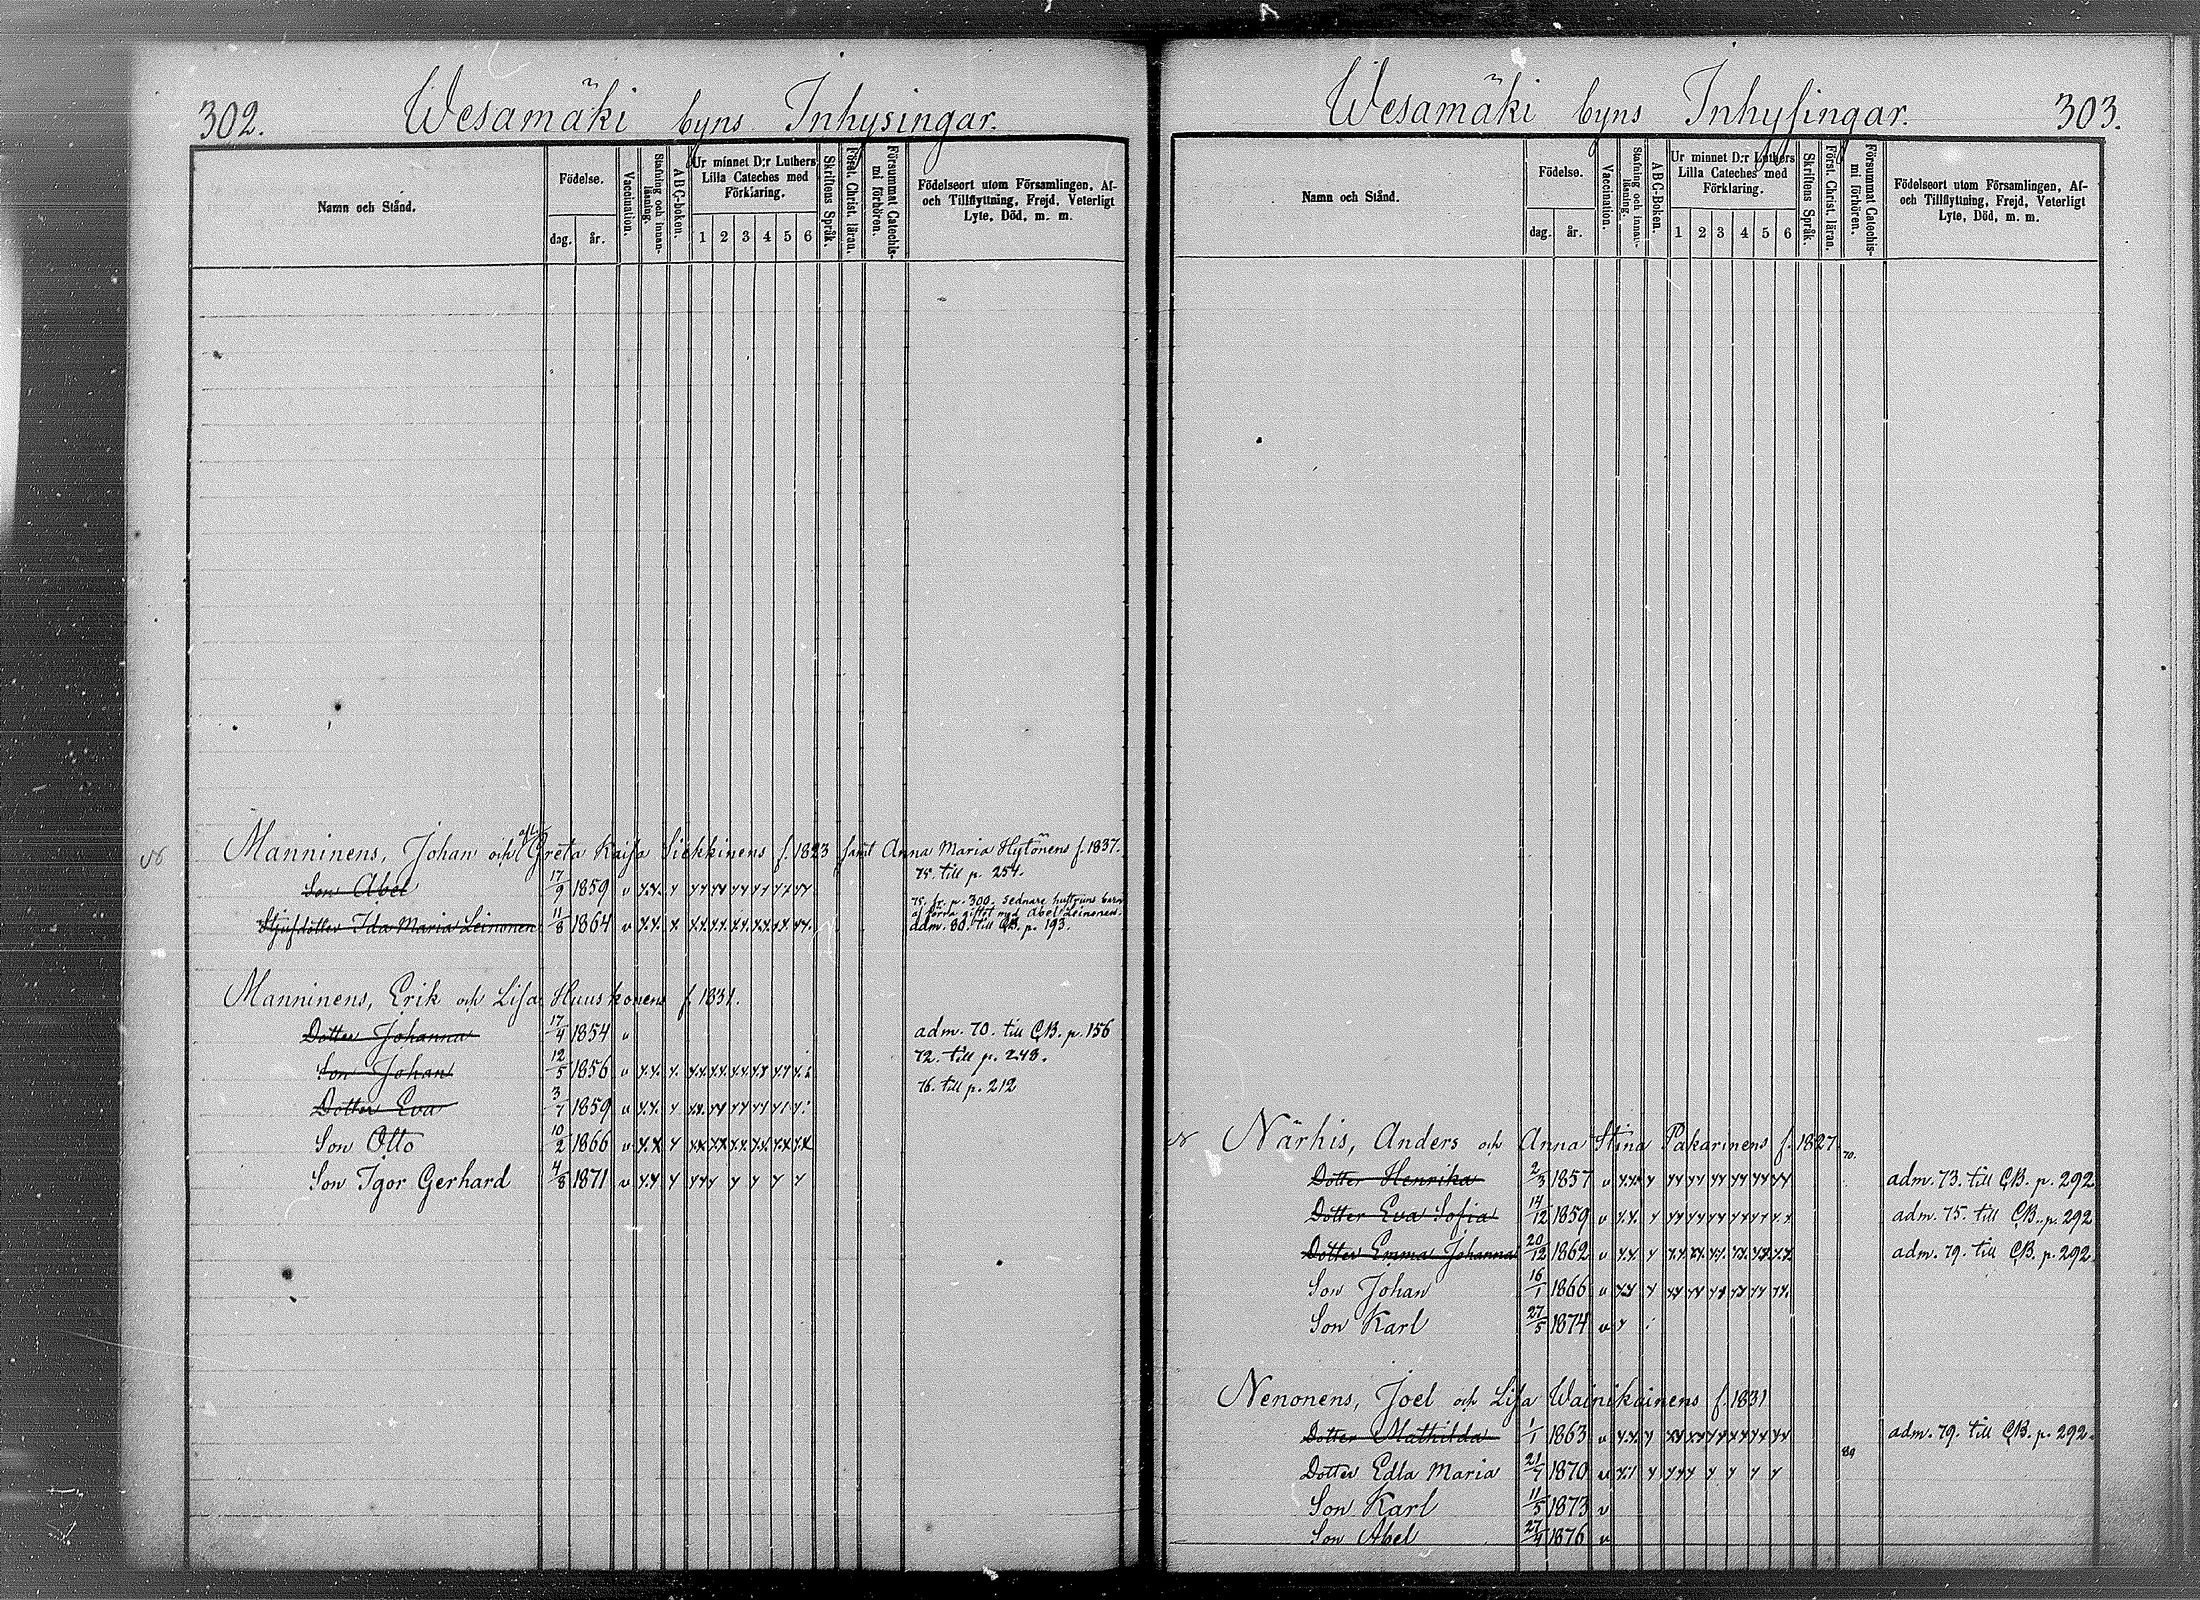 302. Wesamäki byns Inhysingar.
Namn och Stånd.
Födelse.
dag. år.
Vaccination.
Stafning och innan-läsning.
ABC-boken.
Ur minnet D:r Luthers Lilla Cateches med Förklaring.
1 2 3 4 5 6
Skriftens Språk.
Först. Christ. läran.
Försummat Catechis-mi förhören.
Födelseort utom Församlingen, Af-
och Tillflyttning, Frejd, Veterligt
Lyte, Död, m. m.
Manninens, Johan och Greta Kaisa Siekkinens f. 1823 samt Anna Maria Hytönens f. 1837.
Son Abel 17/9 1859 v 75. till p. 254.
75. fr. p. 300. Sednare hustruns barn
af förra giftet med Abel Leinonen.
Stjufdotter Ida Maria Leinonen 11/8 1864 v adm. 80. till CB. p. 193.
Manninens, Erik och Lisa Huuskonens f. 1831.
Dotter Johanna 17/4 1854 v adm. 70. till CB. p. 156
Son Johan 12/5 1856 v 72. till p. 248.
Dotter Eva 3/7 1859 v 76. till p. 212
Son Otto 10/2 1866 v
Son Igor Gerhard 4/8 1871 v
Wesamäki byns Inhysingar. 303.
Namn och Stånd.
Födelse.
dag. år.
Vaccination.
Stafning och innan-läsning.
ABC-Boken.
Ur minnet D:r Luthers Lilla Cateches med Förklaring.
1 2 3 4 5 6
Skriftens Språk.
Först. Christ. läran.
Försummat Catechis-mi förhören.
Födelseort utom Församlingen, Af-
och Tillflyttning, Frejd, Veterligt
Lyte, Död, m. m.
Närhis, Anders och Anna Stina Pakarinens f. 1827. 70.
Dotter Henrika 2/3 1857 v adm. 73. till CB. p. 292
Dotter Eva Sofia 14/12 1859 v adm. 75. till CB. p. 292
Dotter Emma Johanna 20/12 1862 v adm. 79. till CB. p. 292.
Son Johan 16/1 1866 v
Son Karl 27/5 1874 v
Nenonens, Joel och Lisa Wainikainens f. 1831
Dotter Mathilda 1/1 1863 v adm. 79. till CB. p. 292.
Dotter Edla Maria 21/7 1870 v
Son Karl 11/5 1873 v
Son Abel 27/4 1876 v